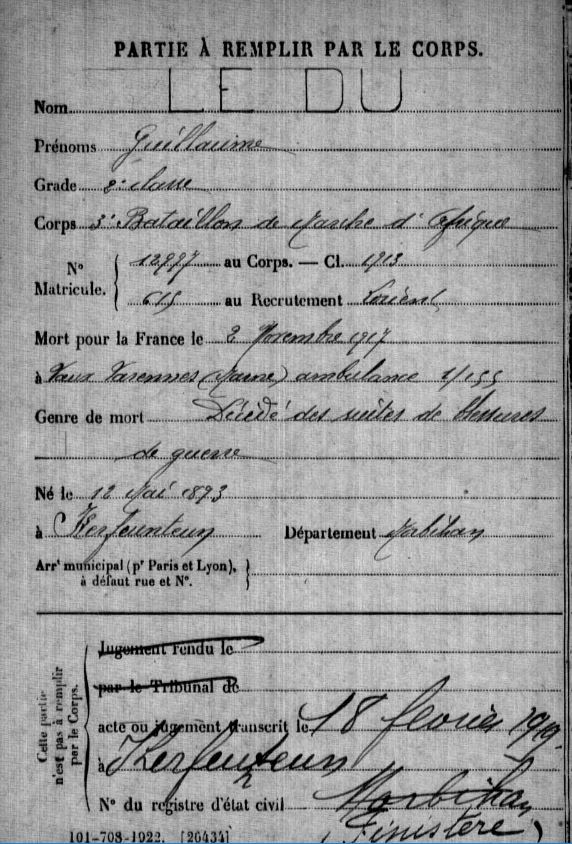 PARTIE À REMPLIR PAR LE CORPS.
Nom LE DU
Prénoms Guillaume
Grade 2e classe
Corps 3e Bataillon de Marche d'Afrique
N° Matricule. 12997 au Corps. — Cl. 1913
615 au Recrutement Lorient
Mort pour la France le 2 Novembre 1917
à Vaux Varennes (Marne) ambulance 1/155
Genre de mort Décédé des suites de blessures
de guerre
Né le 12 Mai 1893
à Kerfeunteun Département Morbihan
Arrt municipal (pr Paris et Lyon),
à défaut rue et N°.
Cette partie
n'est pas à remplir
par le Corps.
Jugement rendu le
par le Tribunal de
acte ou jugement transcrit le 18 février 1919.
à Kerfeunteun
N° du registre d'état civil Morbihan
(Finistère)
101-708-1922. [26434]